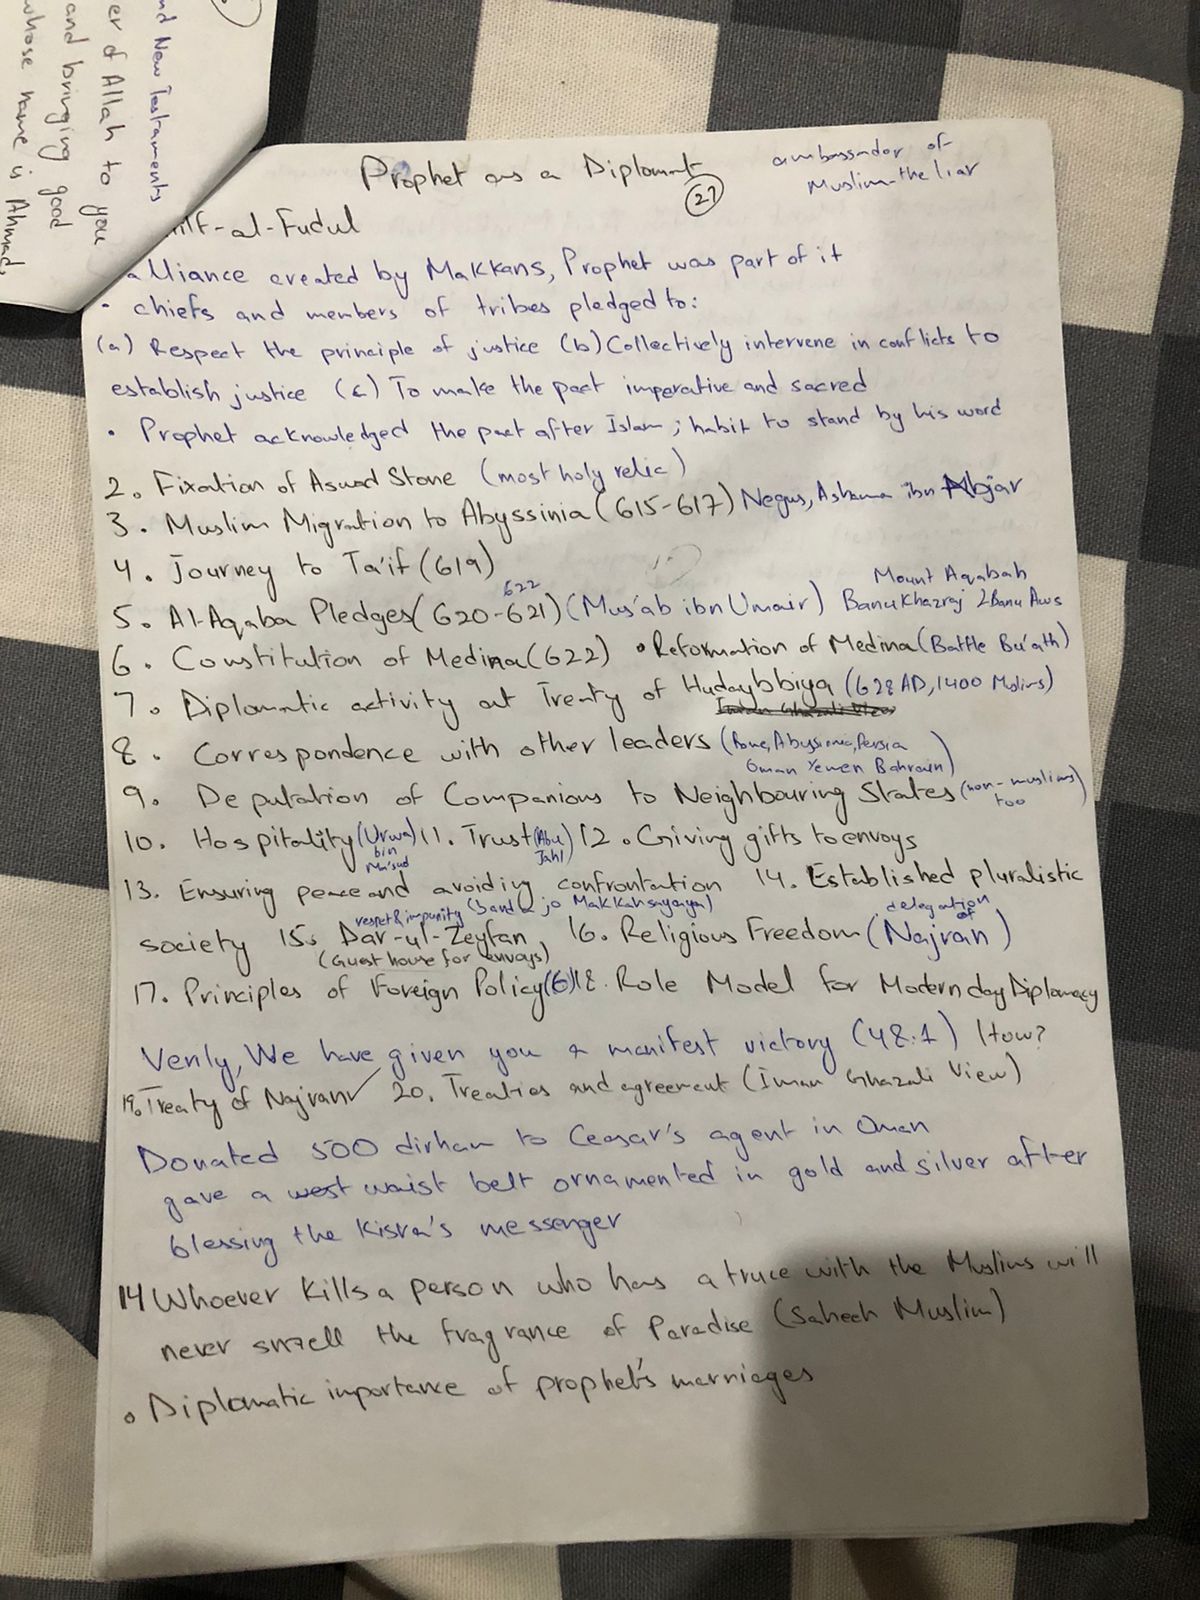 nd New Testaments
er of Allah to you
and bringing good
whose name is Ahmad,
Prophet as a Diplomat
27
ambassador of
Muslim-the liar
ilf-al-Fudul
alliance created by Makkans, Prophet was part of it
• chiefs and members of tribes pledged to:
(a) Respect the principle of justice (b) Collectively intervene in conflicts to
establish justice (c) To make the pact imperative and sacred
• Prophet acknowledged the pact after Islam; habit to stand by his word
2. Fixation of Aswad Stone (most holy relic)
3. Muslim Migration to Abyssinia (615-617) Negus, Ashama ibn Abjar
4. Journey to Ta'if (619)
5. Al-Aqaba Pledges (620-621) 622 (Mus'ab ibn Umair) Mount Aqabah Banu Khazraj & Banu Aws
6. Constitution of Medina (622) • Reformation of Medina (Battle Bu'ath)
7. Diplomatic activity at Treaty of Hudaybbiya (628 AD, 1400 Mslims)
Imam Ghazali View
8. Correspondence with other leaders (Rome, Abyssinia, Persia
Oman Yemen Bahrain)
9. Deputation of Companions to Neighbouring States (non-muslims too)
10. Hospitality (Urwa bin Ma'sud) 11. Trust (Abu Jahl) 12. Giving gifts to envoys
13. Ensuring peace and avoiding confrontation 14. Established pluralistic
(banda jo Makkah se ayega)
society 15. Dar-ul-Zeyfan, respect & impunity (Guest house for envoys) 16. Religious Freedom (delegation of Najran)
17. Principles of Foreign Policy (6) 18. Role Model for Modern day Diplomacy
Verily, We have given you a manifest victory (48:1) How?
19. Treaty of Najran ✓ 20. Treaties and agreement (Imam Ghazali View)
Donated 500 dirham to Ceasar's agent in Oman
gave a west waist belt ornamented in gold and silver after
blessing the Kisra's messenger
14 Whoever kills a person who has a truce with the Muslims will
never smell the fragrance of Paradise (Saheeh Muslim)
• Diplomatic importance of prophet's marriages